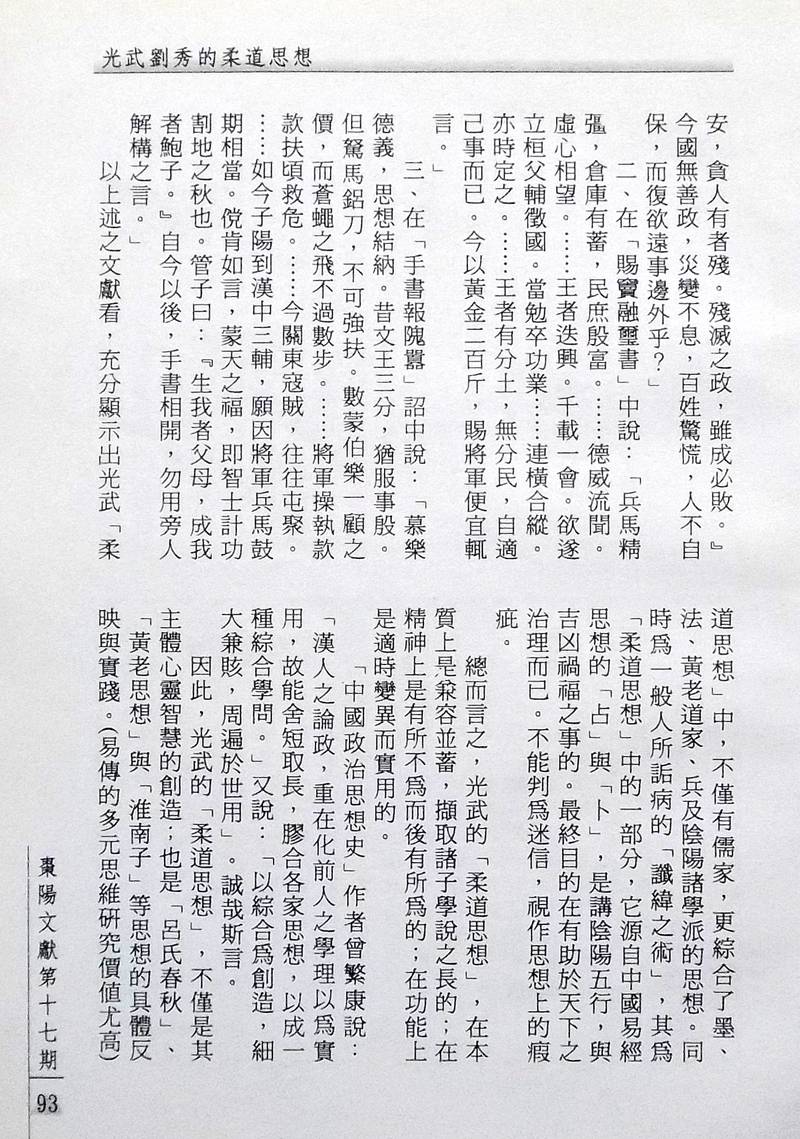 光武劉秀的柔道思想
安，貪人有者殘。殘滅之政，雖成必敗。』
今國無善政，災變不息，百姓驚慌，人不自
保，而復欲遠事邊外乎？」
二、在「賜竇融璽書」中說：「兵馬精
彊，倉庫有蓄，民庶殷富。……德威流聞。
虛心相望。……王者迭興。千載一會。欲遂
立桓父輔徵國。當勉卒功業……連橫合縱。
亦時定之。……王者有分土，無分民，自適
己事而已。今以黃金二百斤，賜將軍便宜輒
言。」
三、在「手書報隗囂」詔中說：「慕樂
德義，思想結納。昔文王三分，猶服事殷。
但駑馬鉛刀，不可強扶。數蒙伯樂一顧之
價，而蒼蠅之飛不過數步。……將軍操執款
款扶頃救危。……今關東寇賊，往往屯聚。
……如今子陽到漢中三輔，願因將軍兵馬鼓
期相當。儻肯如言，蒙天之福，即智士計功
割地之秋也。管子曰：『生我者父母，成我
者鮑子。』自今以後，手書相開，勿用旁人
解構之言。」
以上述之文獻看，充分顯示出光武「柔
道思想」中，不僅有儒家，更綜合了墨、
法、黃老道家、兵及陰陽諸學派的思想。同
時爲一般人所詬病的「讖緯之術」，其爲
「柔道思想」中的一部分，它源自中國易經
思想的「占」與「卜」，是講陰陽五行，與
吉凶禍福之事的。最終目的在有助於天下之
治理而已。不能判爲迷信，視作思想上的瑕
疵。
總而言之，光武的「柔道思想」，在本
質上是兼容並蓄，擷取諸子學說之長的；在
精神上是有所不爲而後有所爲的；在功能上
是適時變異而實用的。
「中國政治思想史」作者曾繁康說：
「漢人之論政，重在化前人之學理以爲實
用，故能舍短取長，膠合各家思想，以成一
種綜合學問。」又說：「以綜合爲創造，細
大兼賅，周遍於世用」。誠哉斯言。
因此，光武的「柔道思想」，不僅是其
主體心靈智慧的創造；也是「呂氏春秋」、
「黃老思想」與「淮南子」等思想的具體反
映與實踐。(易傳的多元思維研究價值尤高)
棗陽文獻第十七期
93